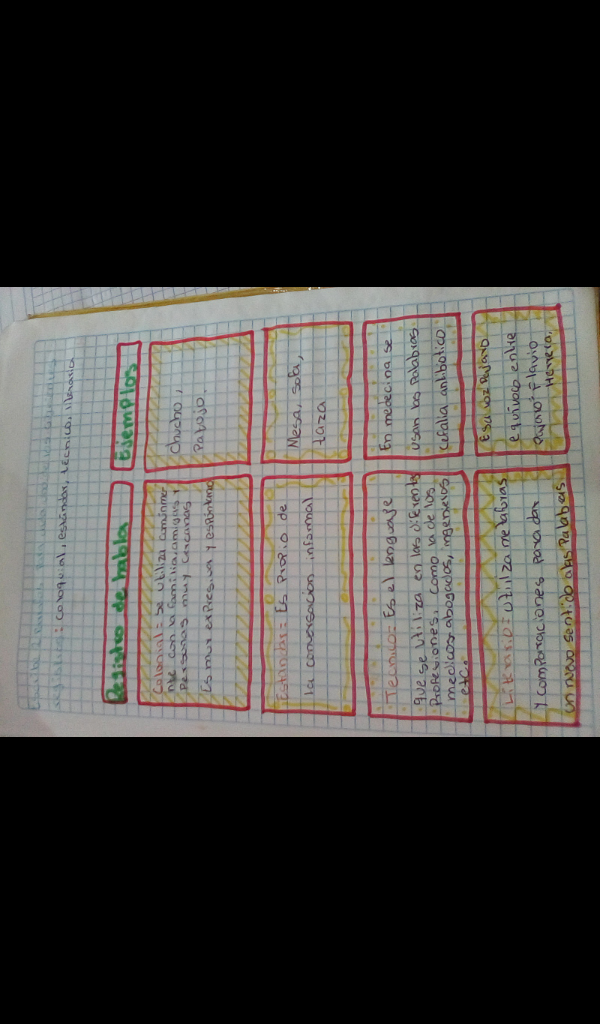 registro: coloquial, estándar, técnico, literario
Registro de habla
Ejemplos
Colonial = se utiliza comunme
nte con la familia, amigas y
Personas muy cercanas
Es muy expresiva y espontane
Chucho,
Papujo.
Estandar = Es propio de
la conversación informal
Mesa, sofa,
taza
Tecnico = Es el lenguaje
que se utiliza en las diferentes
Profesiones, como la de los
medicos abogados, ingenieros
etc.
En medecina se
usan las Palabras
Cefalia antibiotico
Literario = utiliza metaforas
y comparaciones para dar
un nuevo sentido alas Palabras
Esa voz Pajaro
equivoco entre
Pajaro" Flavio
Herrera.